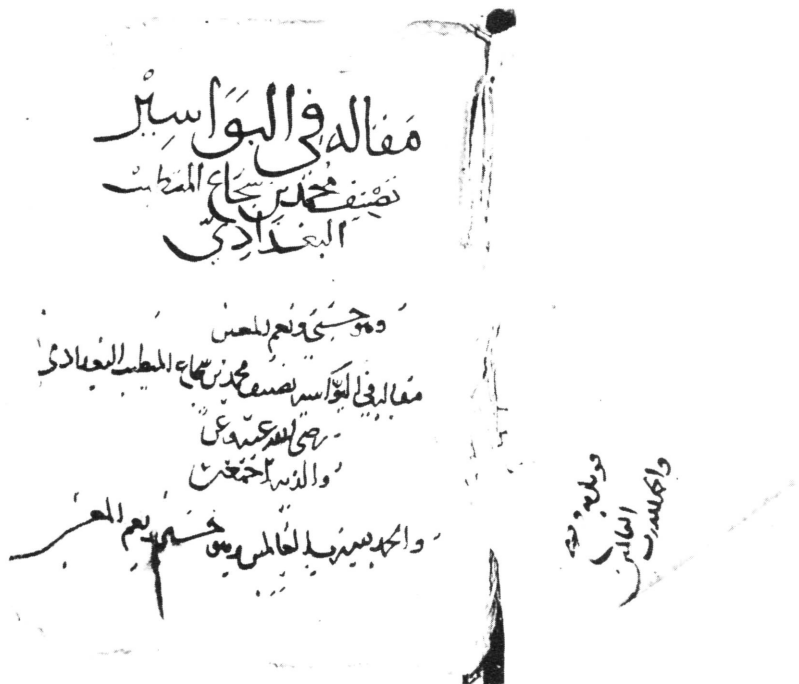 مقاله في البَوَاسِيْر
تصنيف محمد بن شجاع المتطبب
البغدادي
وهو حسبي ونعم المعين
مقاله في البواسير تصنيف محمد بن شجاع المتطبب البغدادي
رضي الله عنه وعن
والديه اجمعين
والحمد لله رب العالمين وهو حسبي ونعم المعين
والحمد لله رب
العالمين